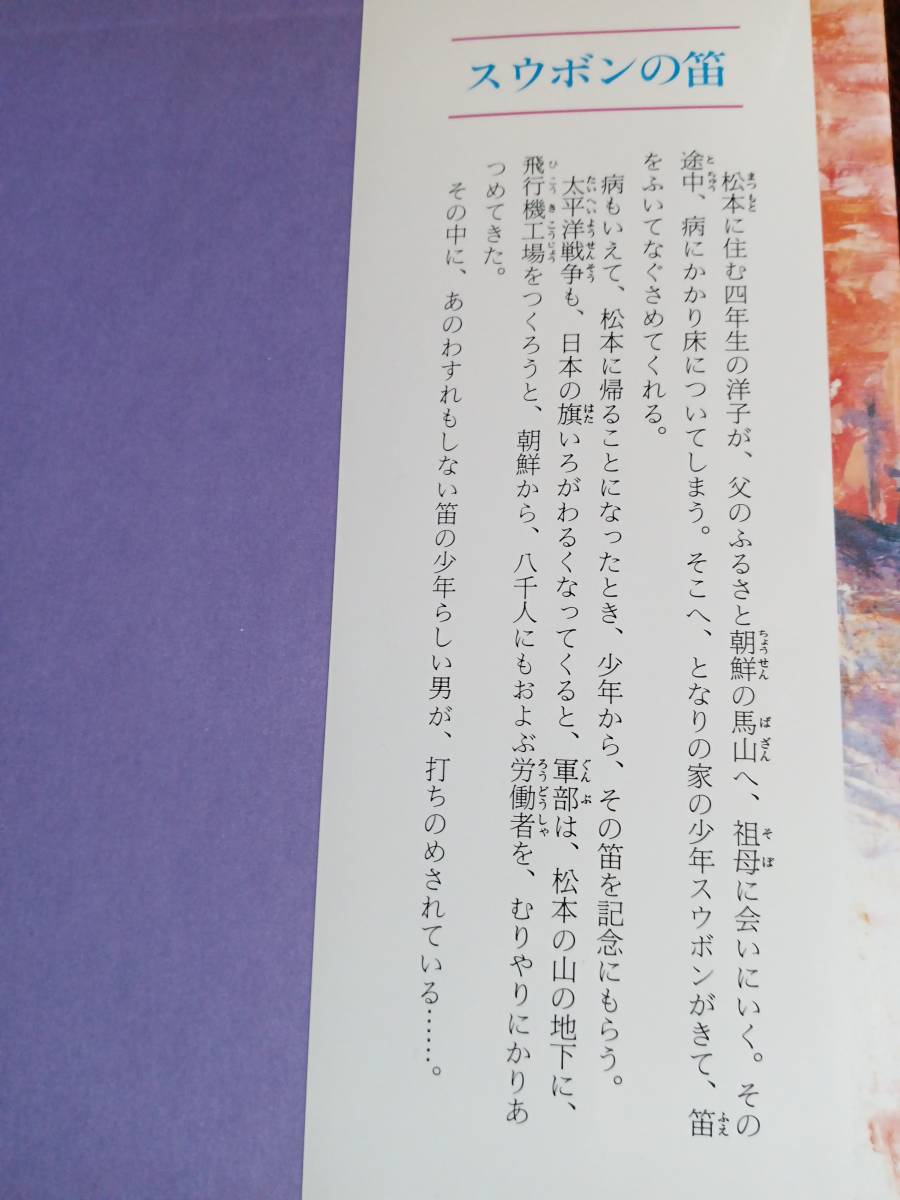 スウボンの笛
松本に住む四年生の洋子が、父のふるさと朝鮮の馬山へ、祖母に会いにいく。その
途中、病にかかり床についてしまう。そこへ、となりの家の少年スウボンがきて、笛
をふいてなぐさめてくれる。
病もいえて、松本に帰ることになったとき、少年から、その笛を記念にもらう。
太平洋戦争も、日本の旗いろがわるくなってくると、軍部は、松本の山の地下に、
飛行機工場をつくろうと、朝鮮から、八千人にもおよぶ労働者を、むりやりにかりあ
つめてきた。
その中に、あのわすれもしない笛の少年らしい男が、打ちのめされている……。